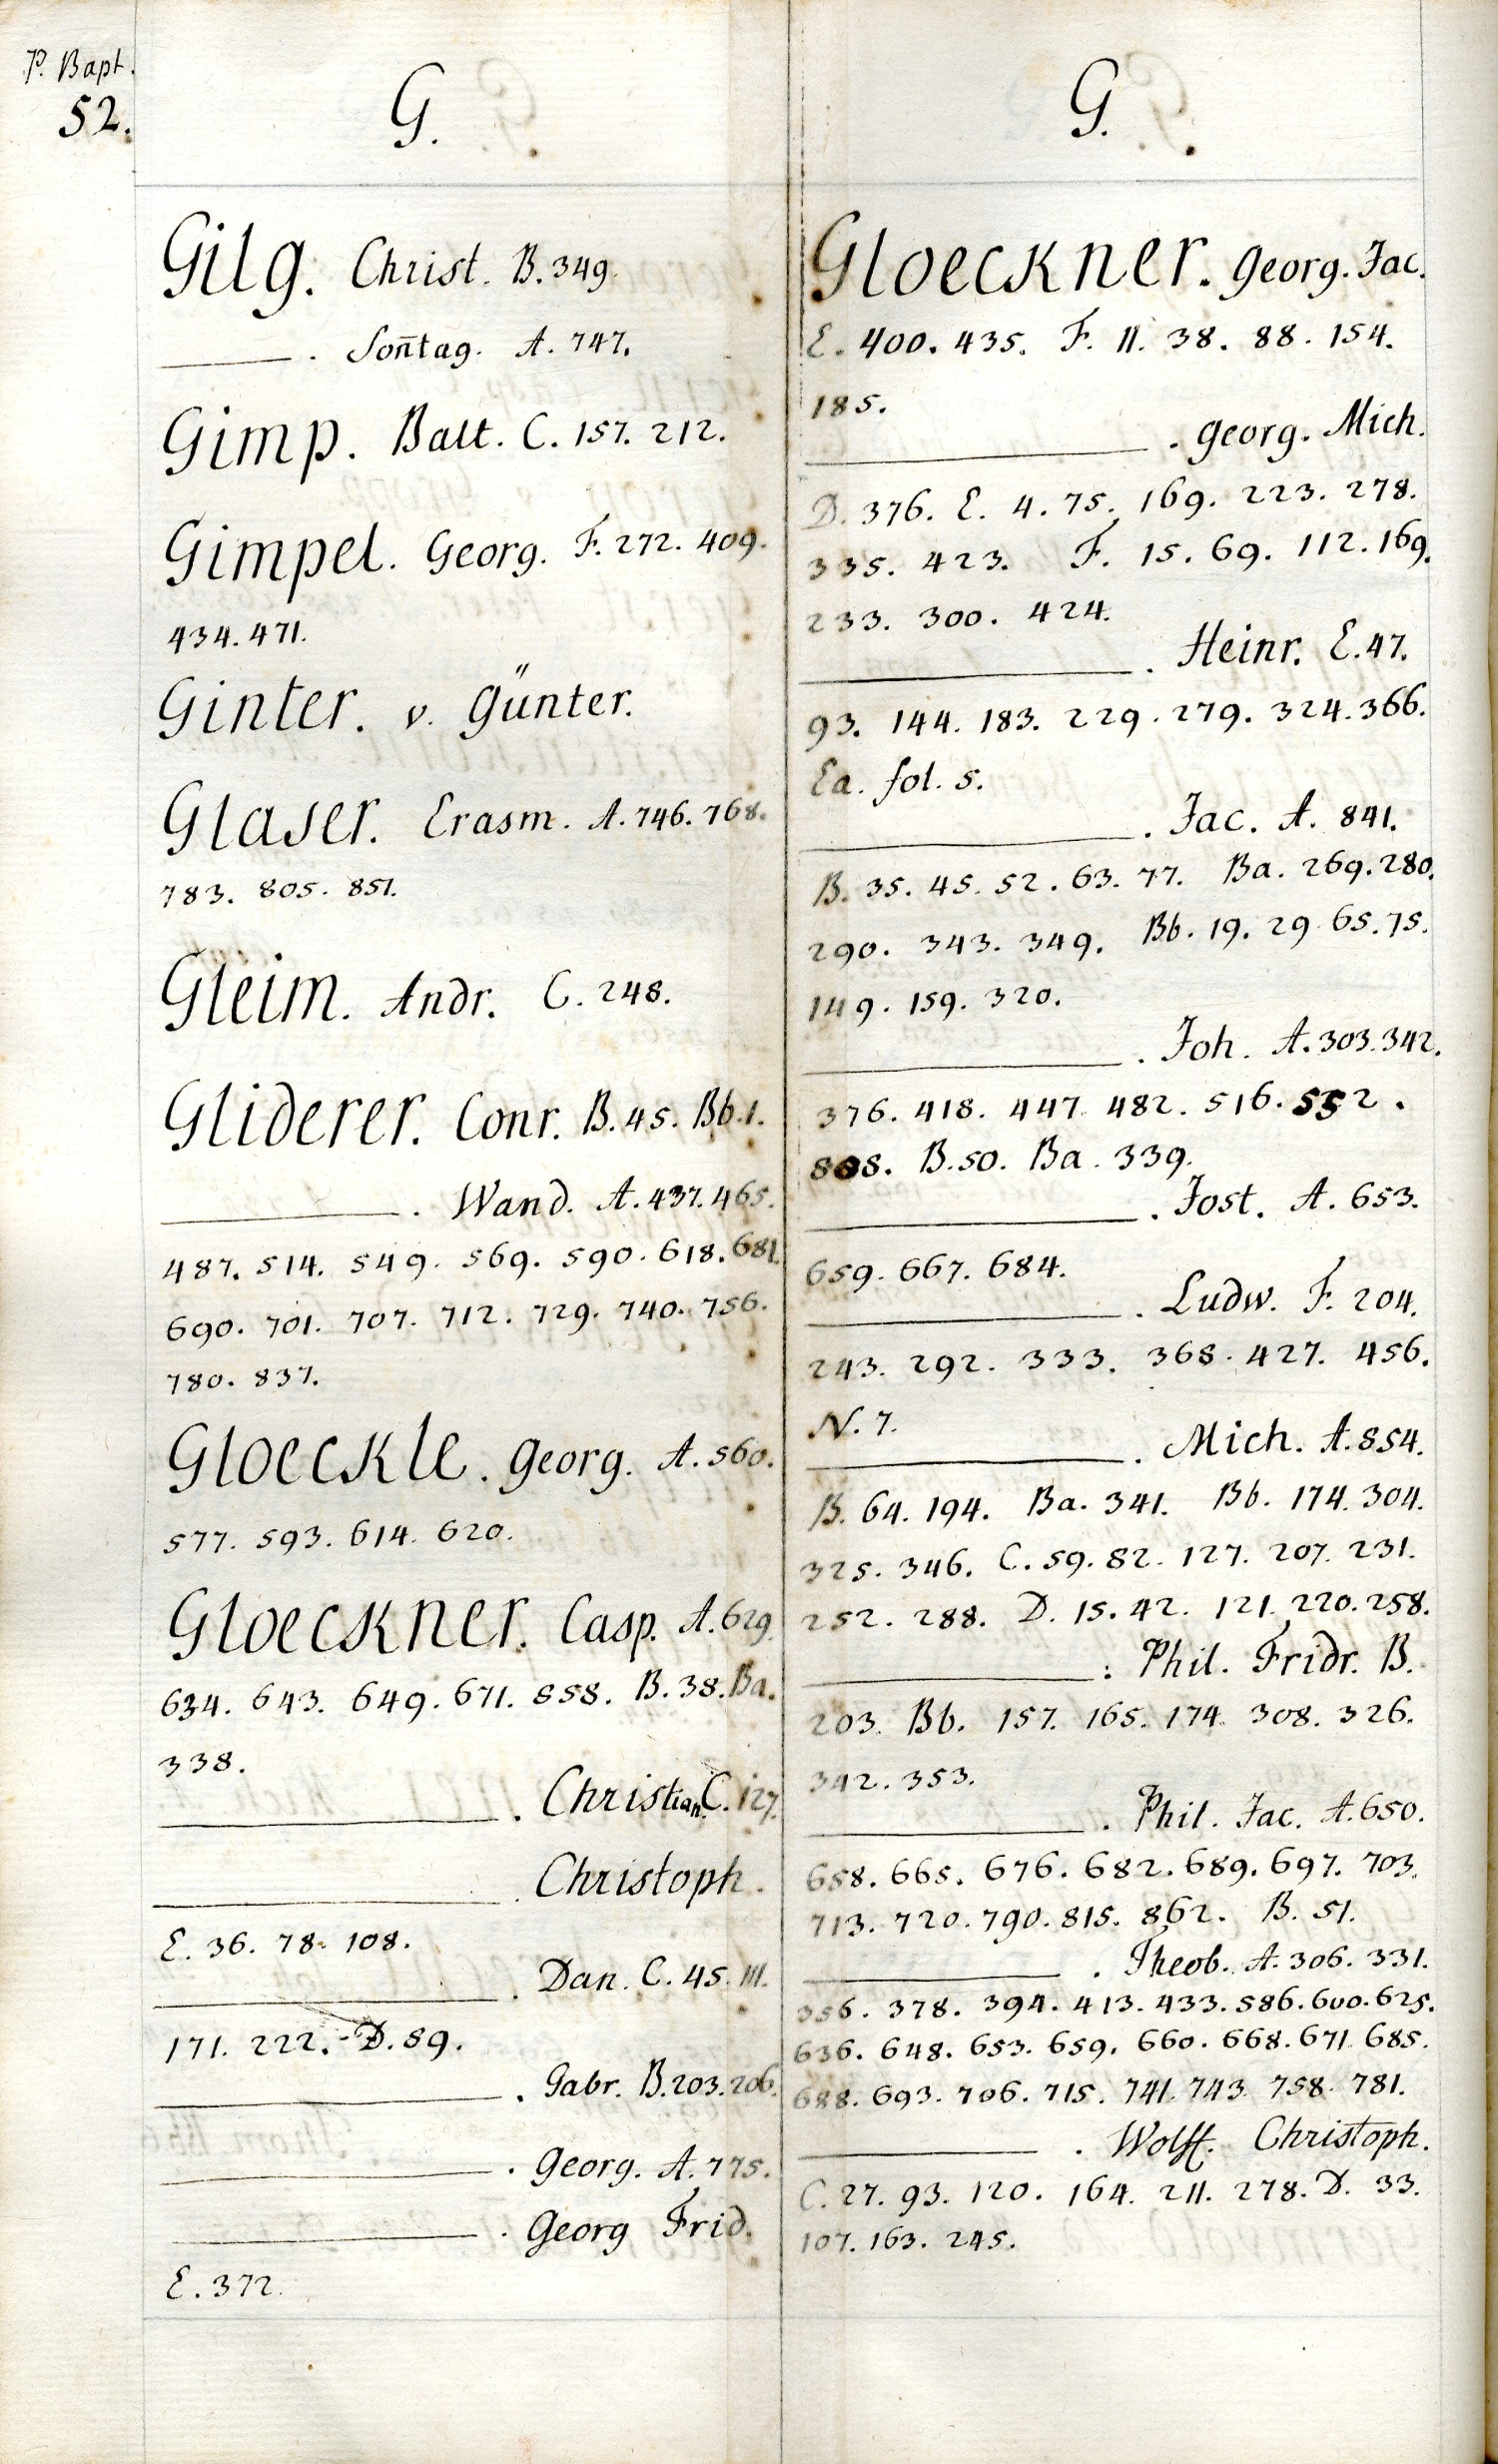 P. Bapt.
52.
G.
Gilg. Christ. B. 349.
———. Son̄tag. A. 747.
Gimp. Balt. C. 157. 212.
Gimpel. Georg. F. 272. 409.
434. 471.
Ginter. v. Günter.
Glaser. Erasm. A. 746. 768.
783. 805. 851.
Gleim. Andr. C. 248.
Gliderer. Conr. B. 45. Bb. 1.
———. Wand. A. 437. 465.
487. 514. 549. 569. 590. 618. 681.
690. 701. 707. 712. 729. 740. 756.
780. 837.
Gloeckle. Georg. A. 560.
577. 593. 614. 620.
Gloeckner. Casp. A. 629.
634. 643. 649. 671. 858. B. 38. Ba.
338.
———. Christian. C. 127.
———. Christoph.
E. 36. 78. 108.
———. Dan. C. 45. 111.
171. 222. - D. 59.
———. Gabr. B. 203. 206.
———. Georg. A. 775.
———. Georg Frid.
E. 372.
G.
Gloeckner. Georg. Jac.
E. 400. 435. F. 11. 38. 88. 154.
185.
———. Georg. Mich.
D. 376. E. 4. 75. 169. 223. 278.
335. 423. F. 15. 69. 112. 169.
233. 300. 424.
———. Heinr. E. 47.
93. 144. 183. 229. 279. 324. 366.
Ea. fol. 5.
———. Jac. A. 841.
B. 35. 45. 52. 63. 77. Ba. 269. 280.
290. 343. 349. Bb. 19. 29. 65. 75.
149. 159. 320.
———. Joh. A. 303. 342.
376. 418. 447. 482. 516. 552.
808. B. 50. Ba. 339.
———. Jost. A. 653.
659. 667. 684.
———. Ludw. F. 204.
243. 292. 333. 368. 427. 456.
N. 7.
———. Mich. A. 854.
B. 64. 194. Ba. 341. Bb. 174. 304.
325. 346. C. 59. 82. 127. 207. 231.
252. 288. D. 15. 42. 121. 220. 258.
———: Phil. Fridr. B.
203. Bb. 157. 165. 174. 308. 326.
342. 353.
———. Phil. Jac. A. 650.
658. 665. 676. 682. 689. 697. 703.
713. 720. 790. 815. 862. B. 51.
———. Theob. A. 306. 331.
356. 378. 394. 413. 433. 586. 600. 625.
636. 648. 653. 659. 660. 668. 671. 685.
688. 693. 706. 715. 741. 743. 758. 781.
———. Wolff. Christoph.
C. 27. 93. 120. 164. 211. 278. D. 33.
107. 163. 245.